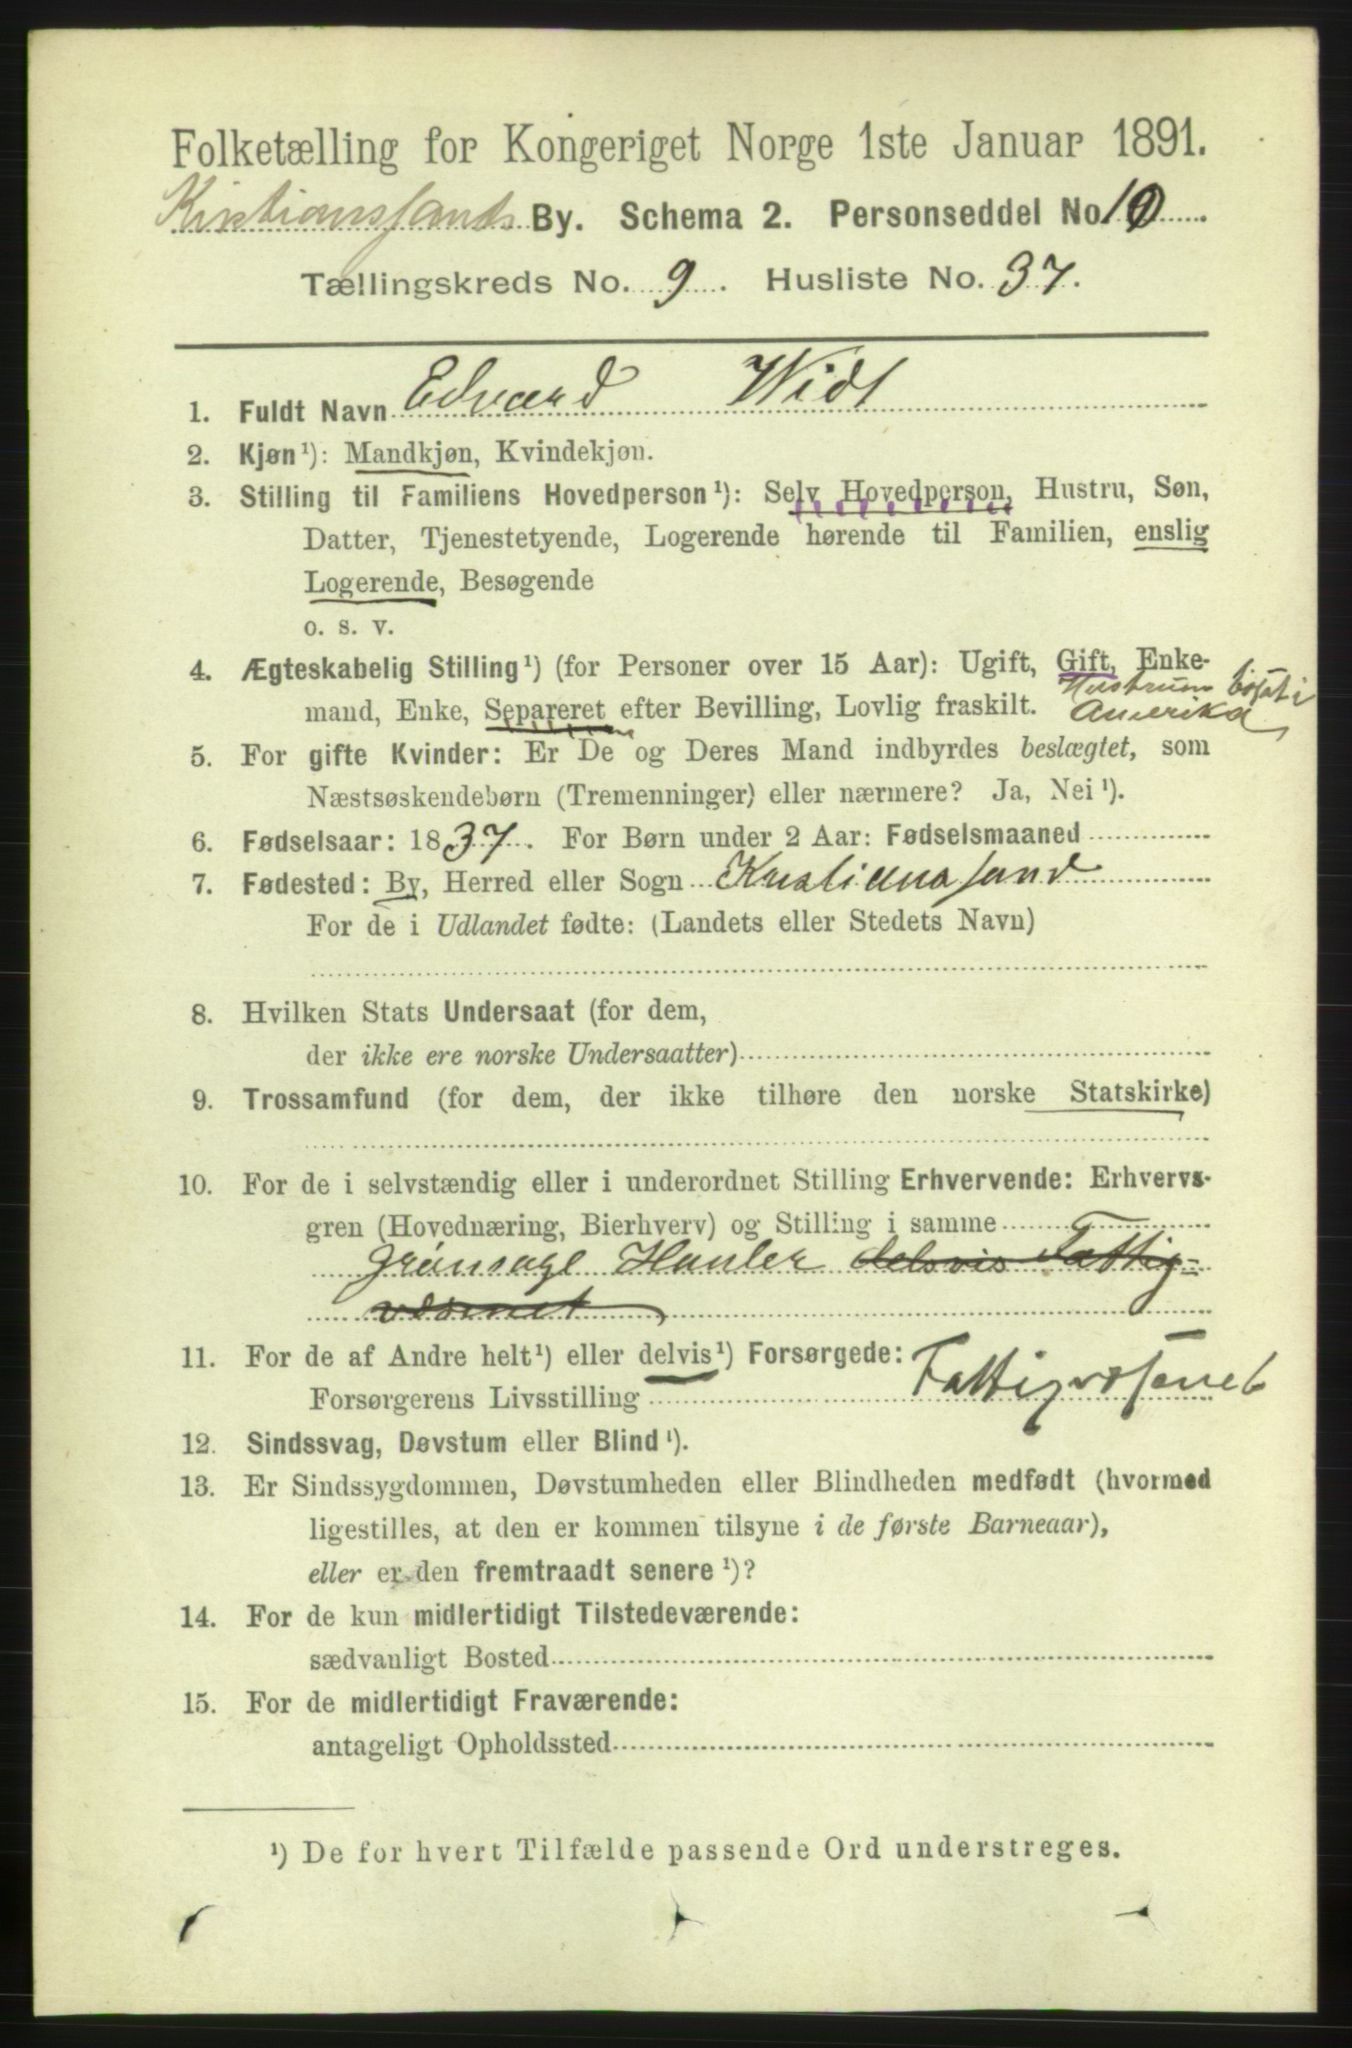 Folketælling for Kongeriget Norge 1ste Januar 1891.
Kristianssands By. Schema 2. Personseddel No 10
Tællingskreds No. 9. Husliste No. 37.
1. Fuldt Navn Edvard Widt
2. Kjøn¹): Mandkjøn, Kvindekjøn.
3. Stilling til Familiens Hovedperson¹): Selv Hovedperson, Hustru, Søn,
Datter, Tjenestetyende, Logerende hørende til Familien, enslig
Logerende, Besøgende
o. s. v.
4. Ægteskabelig Stilling¹) (for Personer over 15 Aar): Ugift, Gift, Enke-
Hustruen bosat i
mand, Enke, Separeret efter Bevilling, Lovlig fraskilt. Amerika
5. For gifte Kvinder: Er De og Deres Mand indbyrdes beslægtet, som
Næstsøskendebørn (Tremenninger) eller nærmere? Ja, Nei¹).
6. Fødselsaar: 1837. For Børn under 2 Aar: Fødselsmaaned
7. Fødested: By, Herred eller Sogn Kristianssand
For de i Udlandet fødte: (Landets eller Stedets Navn)
8. Hvilken Stats Undersaat (for dem,
der ikke ere norske Undersaatter)
9. Trossamfund (for dem, der ikke tilhøre den norske Statskirke)
10. For de i selvstændig eller i underordnet Stilling Erhvervende: Erhvervs-
gren (Hovednæring, Bierhverv) og Stilling i samme
Grønsage Hanler delsvis Fattig-
væsenet
11. For de af Andre helt¹) eller delvis¹) Forsørgede:
Forsørgerens Livsstilling Fattigvæsenet
12. Sindssvag, Døvstum eller Blind¹).
13. Er Sindssygdommen, Døvstumheden eller Blindheden medfødt (hvormed
ligestilles, at den er kommen tilsyne i de første Barneaar),
eller er den fremtraadt senere¹)?
14. For de kun midlertidigt Tilstedeværende:
sædvanligt Bosted
15. For de midlertidigt Fraværende:
antageligt Opholdssted
¹) De for hvert Tilfælde passende Ord understreges.